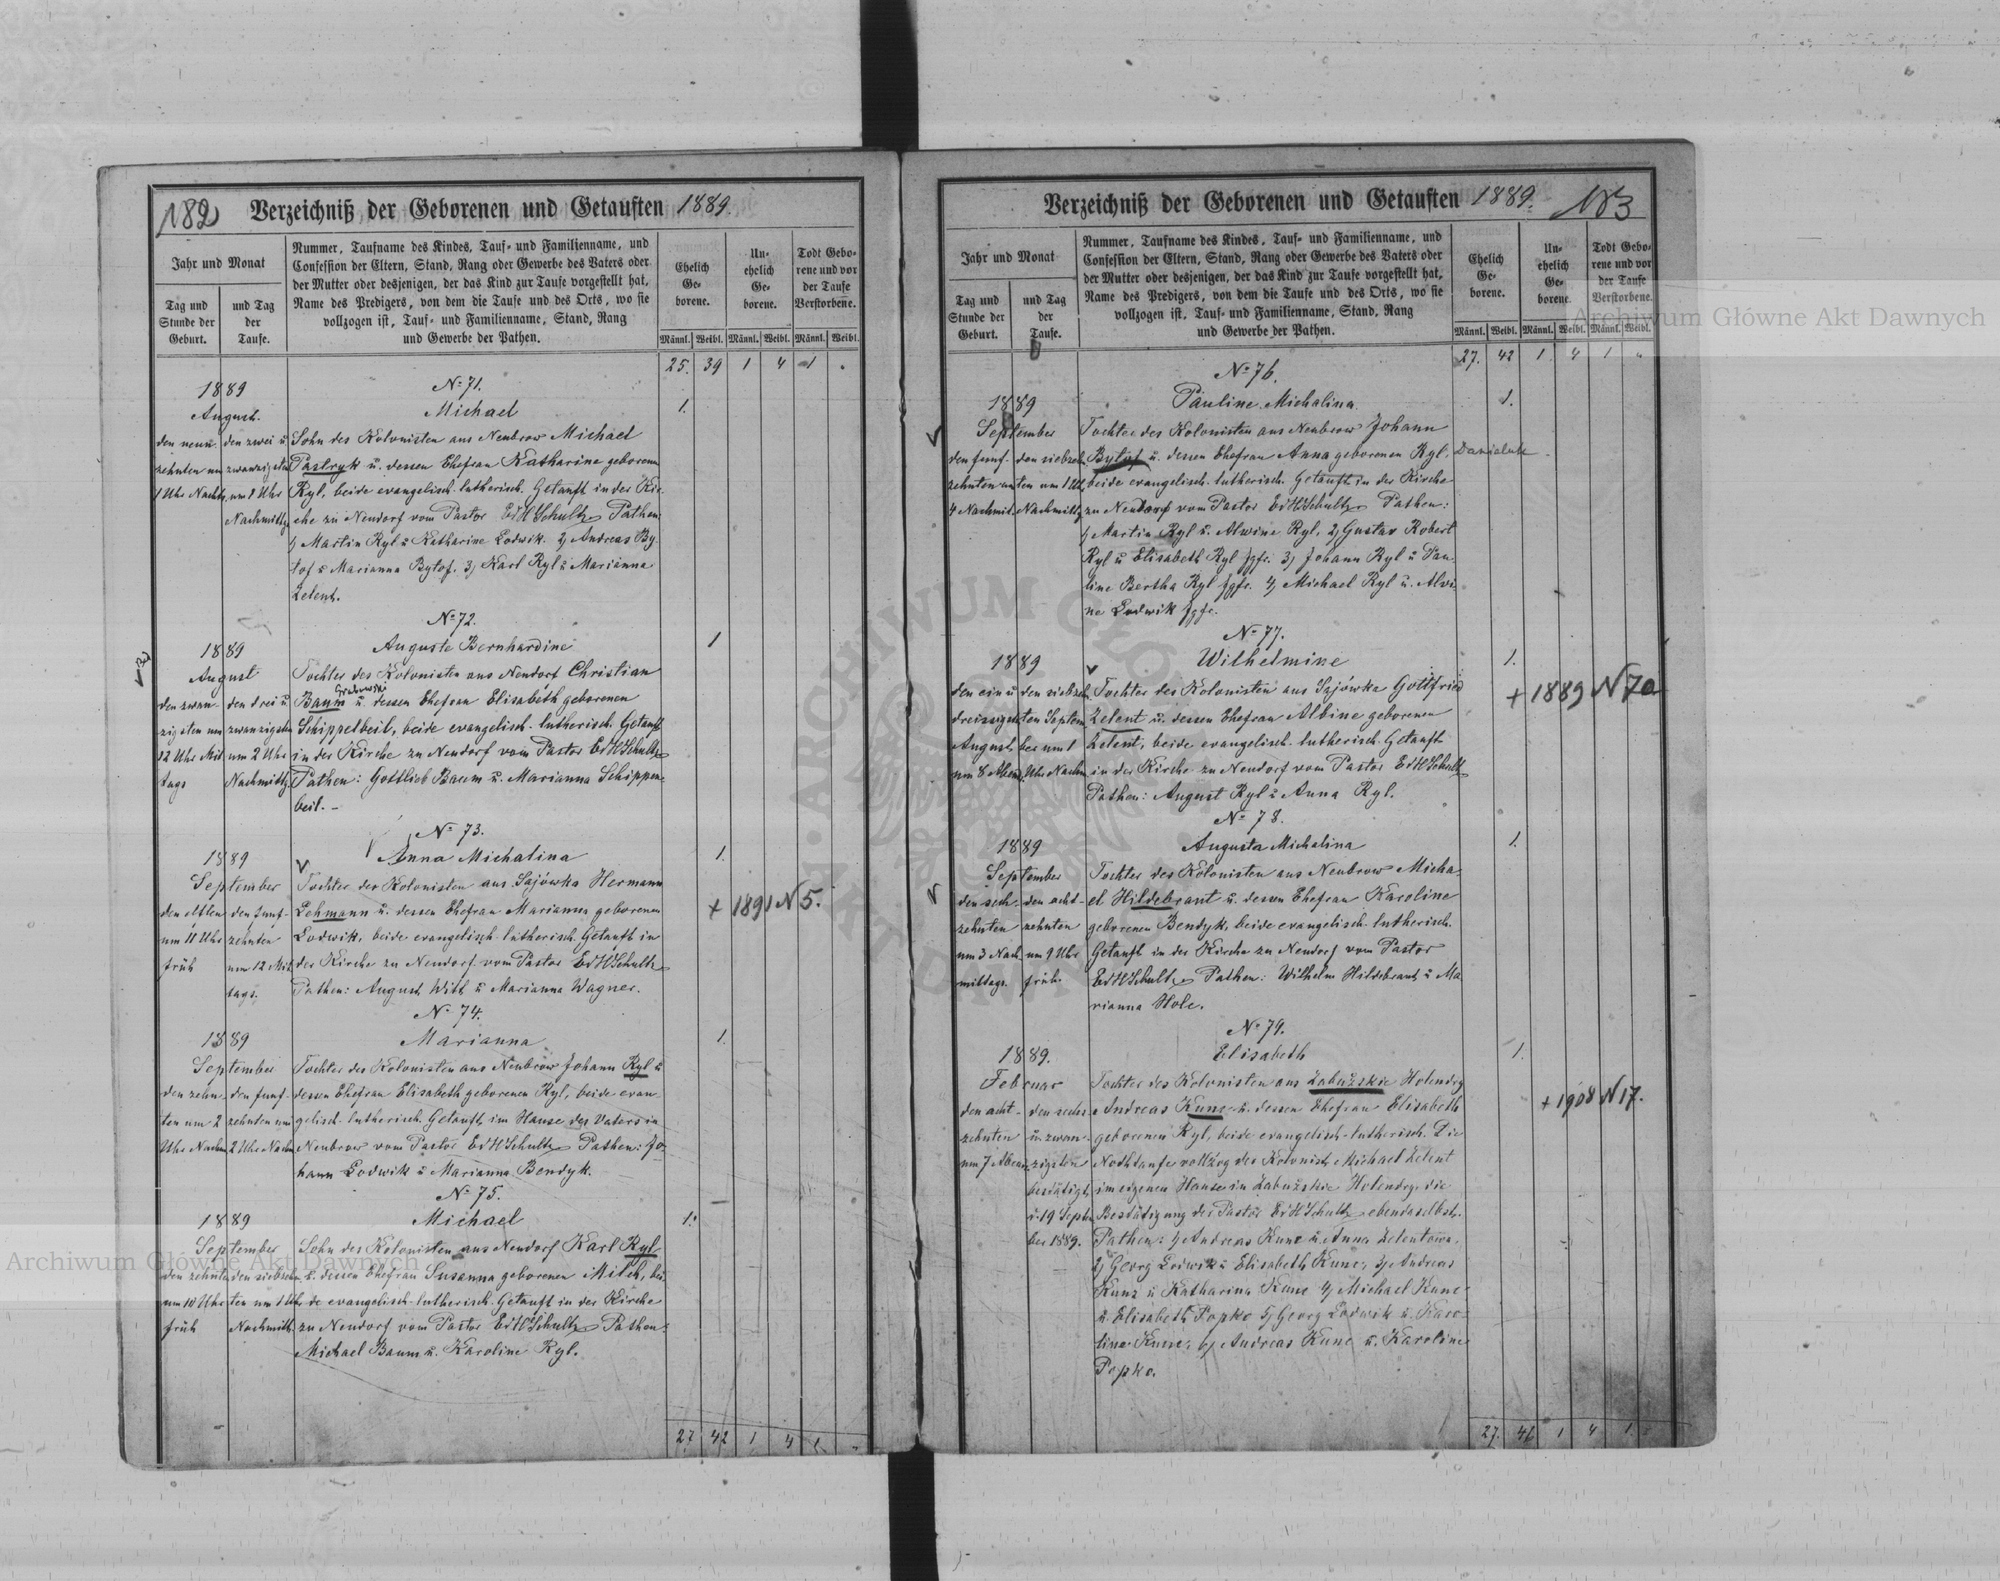 182 Verzeichniß der Geborenen und Getauften 1889.
Jahr und Monat
Tag und Stunde der Geburt.
und Tag der Taufe.
Nummer, Taufname des Kindes, Tauf- und Familienname, und
Confession der Eltern, Stand, Rang oder Gewerbe des Vaters oder
der Mutter oder desjenigen, der das Kind zur Taufe vorgestellt hat,
Name des Predigers, von dem die Taufe und des Orts, wo sie
vollzogen ist, Tauf- und Familienname, Stand, Rang
und Gewerbe der Pathen.
Ehelich Ge- borene.
Un- ehelich Ge- borene.
Todt Gebo- rene und vor der Taufe Verstorbene.
Männl. Weibl. Männl. Weibl. Männl. Weibl.
25. 39 1 4 1
No 71.
1889
August.
den neun- zehnten um 1 Uhr Nachts
den zwei u zwanzigsten um 1 Uhr Nachmittg
Michael 1.
Sohn des Kolonisten aus Neubrow Michael
Pastryk u. dessen Ehefrau Katharine geborenen
Ryl, beide evangelisch-lutherisch. Getauft in der Kir-
che zu Neudorf vom Pastor EdHSchultz Pathen:
1) Martin Ryl u Katharine Lodwik. 2) Andreas By
tof u Marianna Bytof. 3) Karl Ryl u Marianna
Zelent.
No 72.
1889
August
den zwan- zigsten um 12 Uhr Mit tags
den drei u zwanzigsten um 2 Uhr Nachmittg.
Auguste Bernhardine 1
Tochter des Kolonisten aus Neudorf Christian
Grabowski
Baum u. dessen Ehefrau Elisabeth geborenen
Schippelbeil, beide evangelisch-lutherisch. Getauft
in der Kirche zu Neudorf vom Pastor EdHSchultz
Pathen: Gottlieb Baum u. Marianna Schippen-
beil. –
No 73.
1889
September
den elften um 11 Uhr früh
den fünf- zehnten um 12 Mit tags.
Anna Michalina 1.
Tochter des Kolonisten aus Sajówka Hermann
Lehmann u. dessen Ehefrau Marianna geborenen
Lodwik, beide evangelisch-lutherisch. Getauft in
der Kirche zu Neudorf vom Pastor EdHSchultz
Pathen: August Witt u Marianna Wagner.
+ 1891 N 5.
No 74.
1889
September
den zehn- ten um 2 Uhr Nachm
den fünf- zehnten um 2 Uhr Nachm
Marianna 1.
Tochter des Kolonisten aus Neubrow Johann Ryl u
dessen Ehefrau Elisabeth geborenen Ryl, beide evan
gelisch-lutherisch. Getauft im Hause des Vaters in
Neubrow vom Pastor EdHSchultz Pathen: Jo-
hann Lodwik u Marianna Bendyk.
No 75.
1889
September
den zehnten um 10 Uhr früh
den siebzehn ten um 1 Uhr Nachmitt.
Michael 1.
Sohn des Kolonisten aus Neudorf Karl Ryl
u. dessen Ehefrau Susanna geborenen Milch, bei
de evangelisch-lutherisch. Getauft in der Kirche
zu Neudorf vom Pastor EdHSchultz Pathen:
Michael Baum u. Karoline Ryl.
27 42 1 4 1
Verzeichniß der Geborenen und Getauften 1889. 183
Jahr und Monat
Tag und Stunde der Geburt.
und Tag der Taufe.
Nummer, Taufname des Kindes, Tauf- und Familienname, und
Confession der Eltern, Stand, Rang oder Gewerbe des Vaters oder
der Mutter oder desjenigen, der das Kind zur Taufe vorgestellt hat,
Name des Predigers, von dem die Taufe und des Orts, wo sie
vollzogen ist, Tauf- und Familienname, Stand, Rang
und Gewerbe der Pathen.
Ehelich Ge- borene.
Un- ehelich Ge- borene.
Todt Gebo- rene und vor der Taufe Verstorbene.
Männl. Weibl. Männl. Weibl. Männl. Weibl.
27. 42 1 4 1
No 76.
1889
September
den fünf- zehnten um 4 Nachmit.
den siebzehn ten um 1 Uhr Nachmittg
Pauline Michalina 1.
Tochter des Kolonisten aus Neubrow Johann
Bytof u. dessen Ehefrau Anna geborenen Ryl,
beide evangelisch-lutherisch. Getauft in der Kirche
zu Neudorf vom Pastor EdHSchultz Pathen:
1) Martin Ryl u. Alwine Ryl, 2) Gustav Robert
Ryl u Elisabeth Ryl Jgfr. 3) Johann Ryl u Pau-
line Bertha Ryl Jgfr. 4) Michael Ryl u. Alvi
ne Lodwik Jgfr.
No 77.
1889
den ein u dreissigsten August um 8 Abend
den siebzehn ten Septem ber um 1 Uhr Nachm
Wilhelmine 1.
Tochter des Kolonisten aus Sajówka Gottfried
Zelent u. dessen Ehefrau Albine geborenen
Zelent, beide evangelisch-lutherisch. Getauft
in der Kirche zu Neudorf vom Pastor EdHSchultz
Pathen: August Ryl u Anna Ryl.
+ 1889 N 70
No 78.
1889
September
den sech- zehnten um 3 Nach mittags.
den acht- zehnten um 9 Uhr früh.
Augusta Michalina 1.
Tochter des Kolonisten aus Neubrow Micha-
el Hildebrant u. dessen Ehefrau Karoline
geborenen Bendyk, beide evangelisch-lutherisch.
Getauft in der Kirche zu Neudorf vom Pastor
EdHSchultz Pathen: Wilhelm Hildebrant u Ma
rianna Hole.
No 79.
1889.
Februar
den acht- zehnten um 7 Abend
den sechs- u. zwan- zigsten bestätigt d. 19 Septem ber 1889.
Elisabeth 1.
Tochter des Kolonisten aus Zabużskie Holendry
Andreas Kunc u. dessen Ehefrau Elisabeth
geborenen Ryl, beide evangelisch-lutherisch. Die
Nothtaufe vollzog der Kolonist Michael Zelent
im eigenen Hause in Zabużskie Holendry, die
Bestätigung der Pastor EdHSchultz ebendaselbst.
Pathen: 1) Andreas Kunz u. Anna
2) Georg Lodwik u Elisabeth Kunc, 3) Andreas
Kunz u Katharina Kunc 4) Michael Kunc
u. Elisabeth Popko 5) Georg Lodwik u. Karo-
lina Kunc, 6) Andreas Kunc u. Karoline
Popko.
+ 1908 N 17.
27. 46 1 4 1
Archiwum Główne Akt Dawnych
Archiwum Główne Akt Dawnych